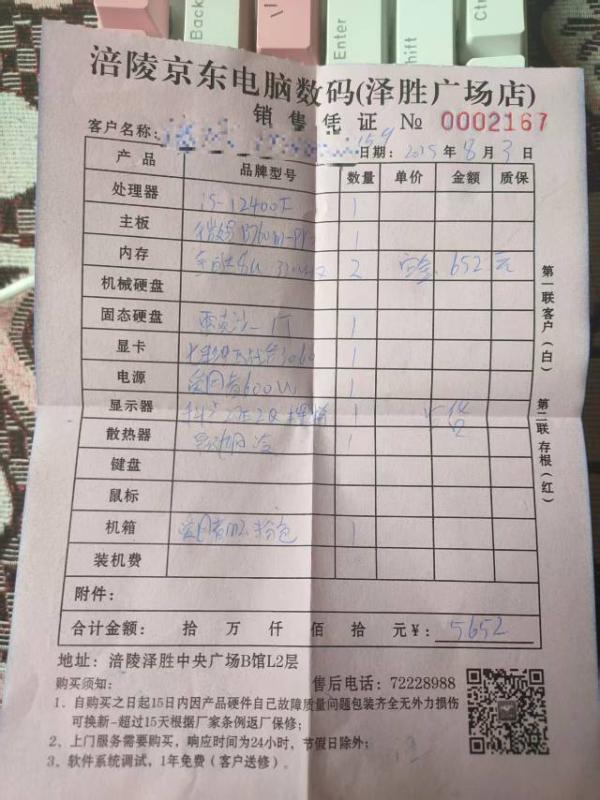 Back
Enter
Shift
Ctrl
涪陵京东电脑数码(泽胜广场店)
销售凭证 № 0002167
客户名称: 日期: 2025年8月3日
产品 品牌型号 数量 单价 金额 质保
处理器 i5-12400F 1
主板 1
内存 2 652元
机械硬盘
固态硬盘 1T 1
显卡 3060 1
电源 600W 1
显示器 1
散热器 1
键盘
鼠标
机箱 粉色 1
装机费
附件:
合计金额: 拾 万 仟 佰 拾 元¥: 5652
第一联客户(白) 第二联存根(红)
地址: 涪陵泽胜中央广场B馆L2层
购买须知: 售后电话: 72228988
1、自购买之日起15日内因产品硬件自己故障质量问题包装齐全无外力损伤
可换新-超过15天根据厂家条例返厂保修;
2、上门服务需要购买,响应时间为24小时,节假日除外;
3、软件系统调试,1年免费(客户送修)。